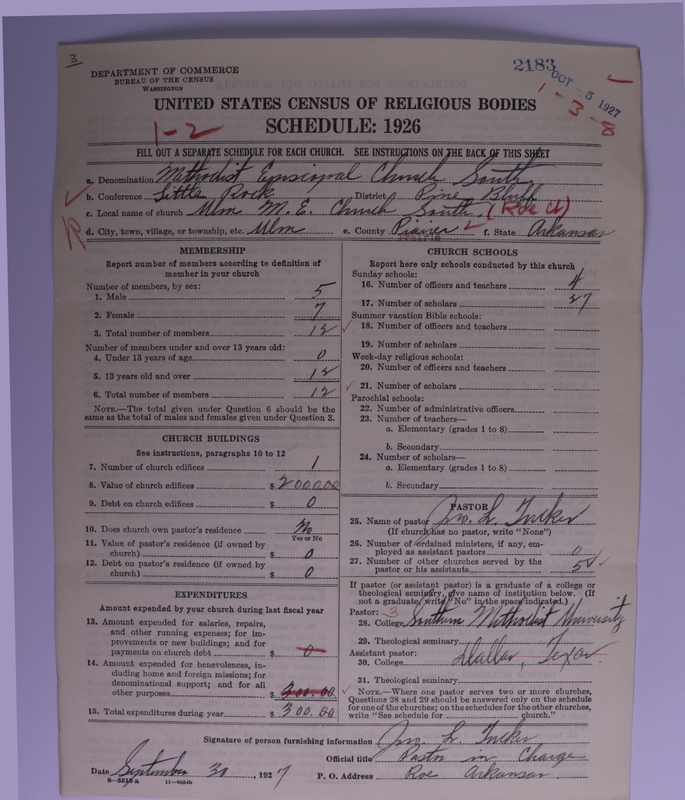 3
DEPARTMENT OF COMMERCE
BUREAU OF THE CENSUS
WASHINGTON
2183
OCT - 5 1927
1 - 3 - 8
UNITED STATES CENSUS OF RELIGIOUS BODIES
1-2
SCHEDULE: 1926
FILL OUT A SEPARATE SCHEDULE FOR EACH CHURCH. SEE INSTRUCTIONS ON THE BACK OF THIS SHEET
a. Denomination Methodist Episcopal Church South
b. Conference Little Rock District Pine Bluff
c. Local name of church Ulm M. E. Church South (Roe Ct)
d. City, town, village, or township, etc. Ulm e. County Prairie f. State Arkansas
MEMBERSHIP
Report number of members according to definition of
member in your church
Number of members, by sex:
1. Male 5
2. Female 7
3. Total number of members 12
Number of members under and over 13 years old:
4. Under 13 years of age 0
5. 13 years old and over 12
6. Total number of members 12
NOTE.—The total given under Question 6 should be the
same as the total of males and females given under Question 3.
CHURCH BUILDINGS
See instructions, paragraphs 10 to 12
7. Number of church edifices 1
8. Value of church edifices $ 2000.00
9. Debt on church edifices $ 0
10. Does church own pastor's residence No
Yes or No
11. Value of pastor's residence (if owned by
church) $ 0
12. Debt on pastor's residence (if owned by
church) $ 0
EXPENDITURES
Amount expended by your church during last fiscal year
13. Amount expended for salaries, repairs,
and other running expenses; for im-
provements or new buildings; and for
payments on church debt $ 0
14. Amount expended for benevolences, in-
cluding home and foreign missions; for
denominational support; and for all
other purposes $ 300.00
15. Total expenditures during year $ 300.00
CHURCH SCHOOLS
Report here only schools conducted by this church
Sunday schools:
16. Number of officers and teachers 4
17. Number of scholars 27
Summer vacation Bible schools:
18. Number of officers and teachers
19. Number of scholars
Week-day religious schools:
20. Number of officers and teachers
21. Number of scholars
Parochial schools:
22. Number of administrative officers
23. Number of teachers—
a. Elementary (grades 1 to 8)
b. Secondary
24. Number of scholars—
a. Elementary (grades 1 to 8)
b. Secondary
PASTOR
25. Name of pastor Jno. L. Tucker
(If church has no pastor, write "None")
26. Number of ordained ministers, if any, em-
ployed as assistant pastors 0
27. Number of other churches served by the
pastor or his assistants 5
If pastor (or assistant pastor) is a graduate of a college or
theological seminary, give name of institution below. (If
not a graduate, write "No" in the space indicated.)
Pastor: 3
28. College Southern Methodist University
29. Theological seminary
Assistant pastor: Dallas, Texas.
30. College
31. Theological seminary
NOTE.—Where one pastor serves two or more churches,
Questions 28 and 29 should be answered only on the schedule
for one of the churches; on the schedules for the other churches,
write "See schedule for church."
Signature of person furnishing information Jno. L. Tucker
Official title Pastor in Charge
Date September 30, 1927 P. O. Address Roe Arkansas
8-5515a